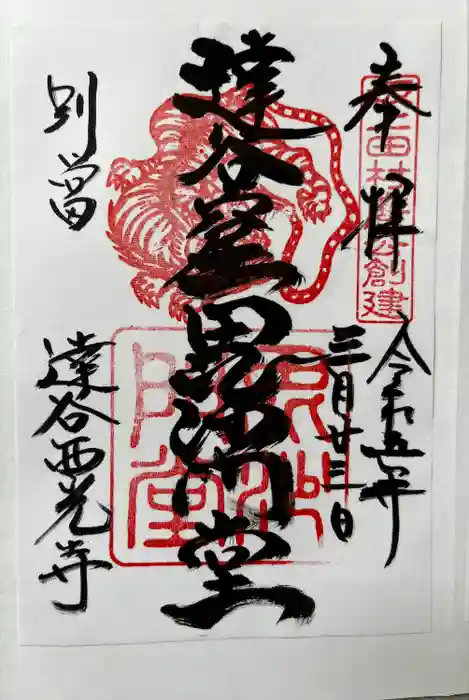 奉拝
令和五年
三月廿三日
達谷窟毘沙門堂
別當
達谷西光寺
田村 公創建
毘沙門堂